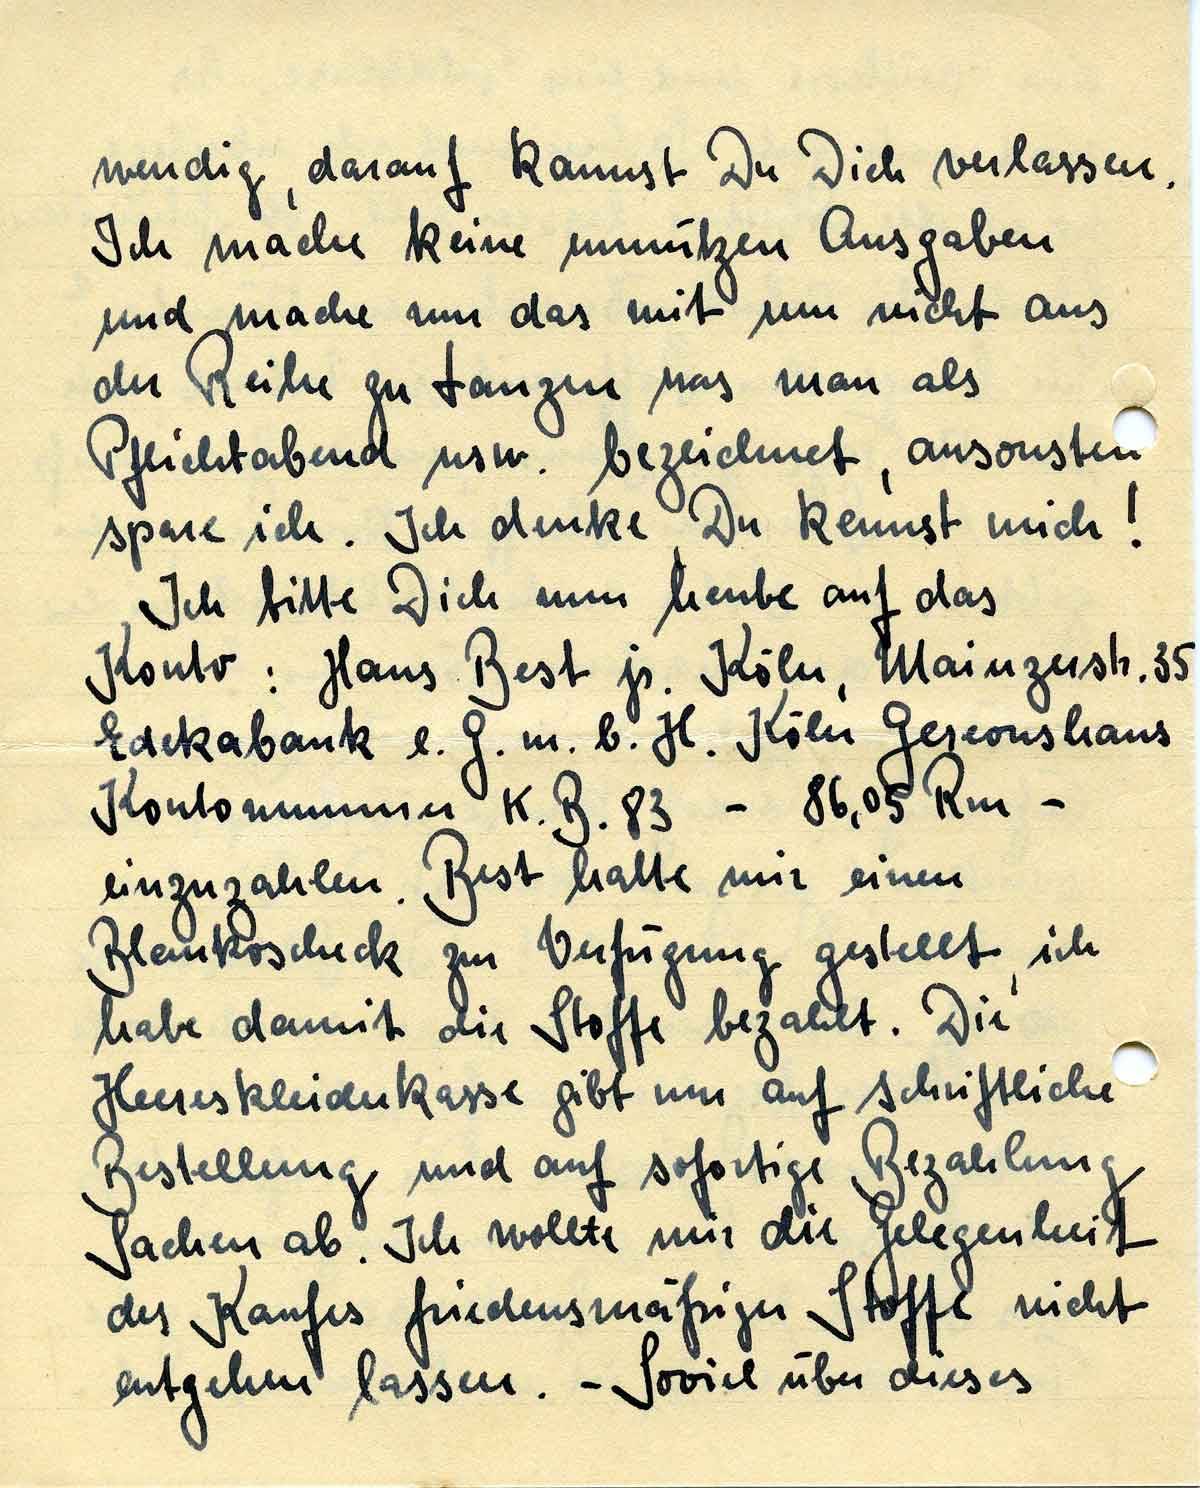 wendig, darauf kannst Du Dich verlassen.
Ich mache keine unnützen Ausgaben
und mache nur das mit um nicht aus
der Reihe zu tanzen was man als
Pflichtabend usw. bezeichnet, ansonsten
spare ich. Ich denke, Du kennst mich!
Ich bitte Dich nun heute auf das
Konto: Hans Best jr. Köln, Mainzerstr. 35
Edekabank e. G. m. b. H. Köln Gereonshaus
Kontonummer K. B. 83 - 86,05 Rm -
einzuzahlen. Best hatte mir einen
Blankoscheck zur Verfügung gestellt, ich
habe damit die Stoffe bezahlt. Die
Heereskleiderkasse gibt nur auf schriftliche
Bestellung und auf sofortige Bezahlung
Sachen ab. Ich wollte mir die Gelegenheit
des Kaufes friedensmäßiger Stoffe nicht
entgehen lassen. - Soviel über dieses